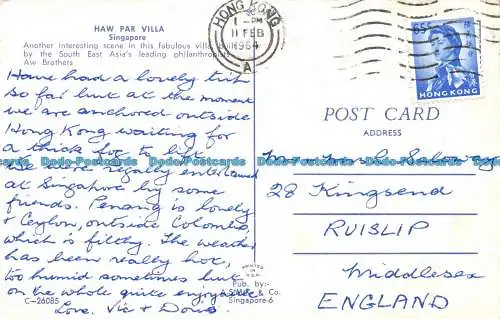 HAW PAR VILLA
Singapore
Another interesting scene in this fabulous villa built
by the South East Asia's leading philanthropist
Aw Brothers
Have had a lovely trip
so far but at the moment
we are anchored outside
Hong Kong waiting for
a thick fog to lift.
We were royally entertained
at Singapore by some
friends. Penang is lovely
& Ceylon, outside Colombo,
which is filthy. The weather
has been really hot,
too humid sometimes but
on the whole quite enjoyable
Love. Vic & Doris.
C-26085
PRINTED IN U.S.A.
Pub. by:-
& Co.
Singapore-6
HONG KONG
1 - PM
11 FEB
1964
A
65c
HONG KONG
POST CARD
ADDRESS
28 Kingsend
RUISLIP
Middlesex
ENGLAND
Dado-Postcards Dado-Postcards Dado-Postcards Dado-Postcards